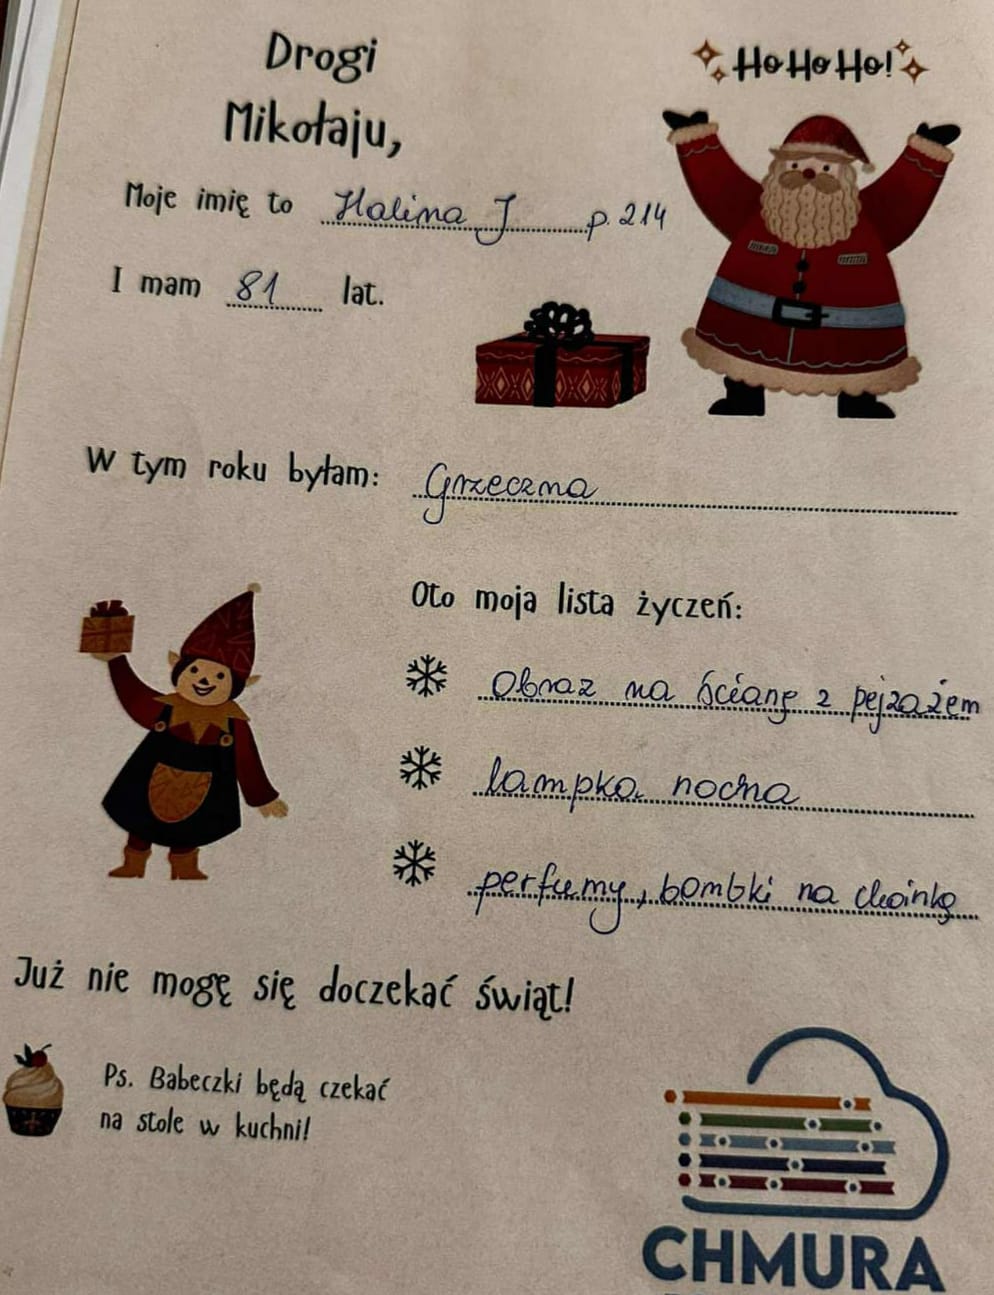 Drogi
Mikołaju,
Ho Ho Ho!
Moje imię to Halina J p. 214
I mam 81 lat.
W tym roku byłam: Grzeczna
Oto moja lista życzeń:
Obraz na ścianę z pejzażem
lampka nocna
perfumy, bombki na choinkę
Już nie mogę się doczekać świąt!
Ps. Babeczki będą czekać
na stole w kuchni!
CHMURA